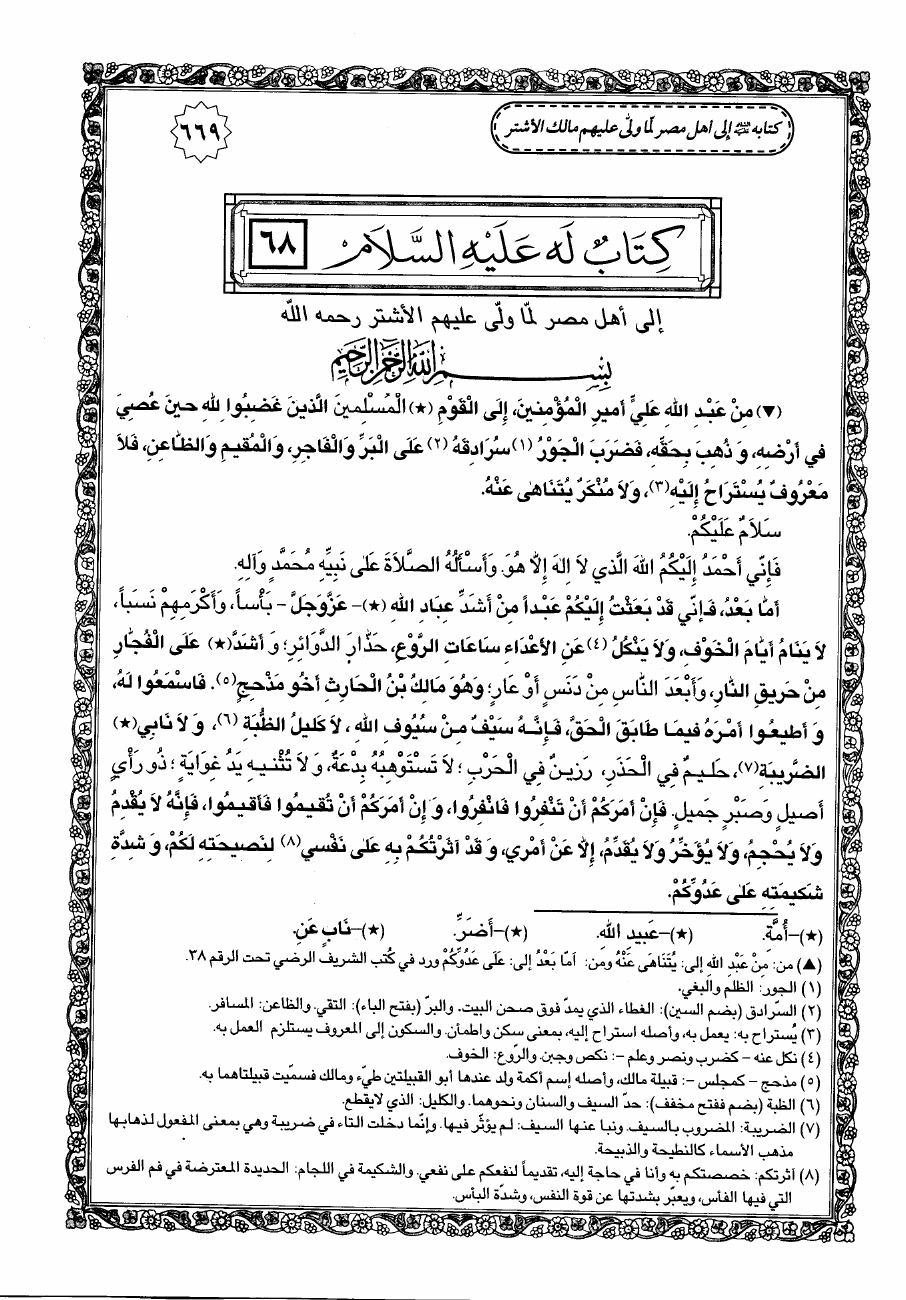 كتابه ﵇ إلى أهل مصر لمّا ولّى عليهم مالك الأشتر
٦٦٩
كِتَابٌ لَه عَلَيْهِ السَّلاَم
٦٨
إلى أهل مصر لمّا ولّى عليهم الأشتر رحمه اللّه
بِسْمِ اللهِ الرَّحْمٰنِ الرَّحِيمِ
(▼) مِنْ عَبْدِ اللهِ عَلِيٍّ أَمِيرِ الْمُؤْمِنِينَ، إِلَى الْقَوْمِ (★) الْمُسْلِمِينَ الَّذِينَ غَضِبُوا لِلهِ حِينَ عُصِيَ
فِي أَرْضِهِ، وَ ذُهِبَ بِحَقِّهِ، فَضَرَبَ الْجَوْرُ (١) سُرَادِقَهُ (٢) عَلَى الْبَرِّ وَالْفَاجِرِ، وَالْمُقِيمِ وَالظَّاعِنِ، فَلاَ
مَعْرُوفٌ يُسْتَرَاحُ إِلَيْهِ(٣)، وَلاَ مُنْكَرٌ يُتَنَاهَى عَنْهُ.
سَلاَمٌ عَلَيْكُمْ.
فَإِنِّي أَحْمَدُ إِلَيْكُمُ اللهَ الَّذِي لاَ اِلهَ اِلاَّ هُوَ. وَأَسْأَلُهُ الصَّلاَةَ عَلَى نَبِيِّهِ مُحَمَّدٍ وَآلِهِ.
أَمَّا بَعْدُ، فَإِنِّي قَدْ بَعَثْتُ إِلَيْكُمْ عَبْداً مِنْ أَشَدِّ عِبَادِ اللهِ (★)- عَزَّوَجَلَّ - بَأْساً، وَأَكْرَمِهِمْ نَسَباً،
لاَ يَنَامُ أَيَّامَ الْخَوْفِ، وَلاَ يَنْكُلُ (٤) عَنِ الأَعْدَاءِ سَاعَاتِ الرَّوْعِ، حَذَارِ الدَّوَائِرِ؛ وَ أَشَدَّ(★) عَلَى الْفُجَّارِ
مِنْ حَرِيقِ النَّارِ، وَأَبْعَدَ النَّاسِ مِنْ دَنَسٍ أَوْ عَارٍ؛ وَهُوَ مَالِكُ بْنُ الْحَارِثِ أَخُو مَذْحِجٍ(٥). فَاسْمَعُوا لَهُ،
وَ أَطِيعُوا أَمْرَهُ فِيمَا طَابَقَ الْحَقَّ، فَإِنَّهُ سَيْفٌ مِنْ سُيُوفِ اللهِ، لاَ كَلِيلُ الظُّبَةِ (٦)، وَ لاَ نَابِي(★)
الضَّرِيبَةِ(٧)، حَلِيمٌ فِي الْحَذَرِ، رَزِينٌ فِي الْحَرْبِ؛ لاَ تَسْتَوْهِبُهُ بِدْعَةٌ، وَ لاَ تُثْنِيهِ يَدُ غِوَايَةٍ؛ ذُو رَأْيٍ
أَصِيلٍ وَصَبْرٍ جَمِيلٍ. فَإِنْ أَمَرَكُمْ أَنْ تَنْفِرُوا فَانْفِرُوا، وَ إِنْ أَمَرَكُمْ أَنْ تُقِيمُوا فَأَقِيمُوا، فَإِنَّهُ لاَ يُقْدِمُ
وَلاَ يُحْجِمُ، وَلاَ يُؤَخِّرُ وَلاَ يُقَدِّمُ، إِلاَّ عَنْ أَمْرِي، وَ قَدْ آثَرْتُكُمْ بِهِ عَلَى نَفْسِي(٨) لِنَصِيحَتِهِ لَكُمْ، وَ شِدَّةِ
شَكِيمَتِهِ عَلَى عَدُوِّكُمْ.
(★)-أُمَّة. (★)-عَبِيد الله. (★)-أَضَرَّ. (★)-نَابٍ عَنِ.
(▲) من: مِنْ عَبْدِ اللهِ إلى: يُتَنَاهَى عَنْهُ ومن: أَمَّا بَعْدُ إلى: عَلَى عَدُوِّكُمْ ورد في كُتب الشريف الرضي تحت الرقم ٣٨.
(١) الجور: الظلم والبغي.
(٢) السّرادق (بضم السين): الغطاء الذي يمدّ فوق صحن البيت. والبرّ (بفتح الباء): التقي. والظاعن: المسافر.
(٣) يُستراح به: يعمل به، وأصله استراح إليه، بمعنى سكن واطمأن. والسكون إلى المعروف يستلزم العمل به.
(٤) نكل عنه - كضرب ونصر وعلم -: نكص وجبن. والرّوع: الخوف.
(٥) مذحج - كمجلس -: قبيلة مالك، وأصله إسم أكمة ولد عندها أبو القبيلتين طيء ومالك فسمّيت قبيلتاهما به.
(٦) الظبة (بضم ففتح مخفف): حدّ السيف والسنان ونحوهما. والكليل: الذي لايقطع.
(٧) الضريبة: المضروب بالسيف. ونبا عنها السيف: لم يؤثّر فيها. وإنّما دخلت التاء في ضريبة وهي بمعنى المفعول لذهابها
مذهب الأسماء كالنطيحة والذبيحة.
(٨) آثرتكم: خصصتكم به وأنا في حاجة إليه، تقديماً لنفعكم على نفعي. والشكيمة في اللجام: الحديدة المعترضة في فم الفرس
التي فيها الفأس، ويعبّر بشدتها عن قوة النفس، وشدّة البأس.